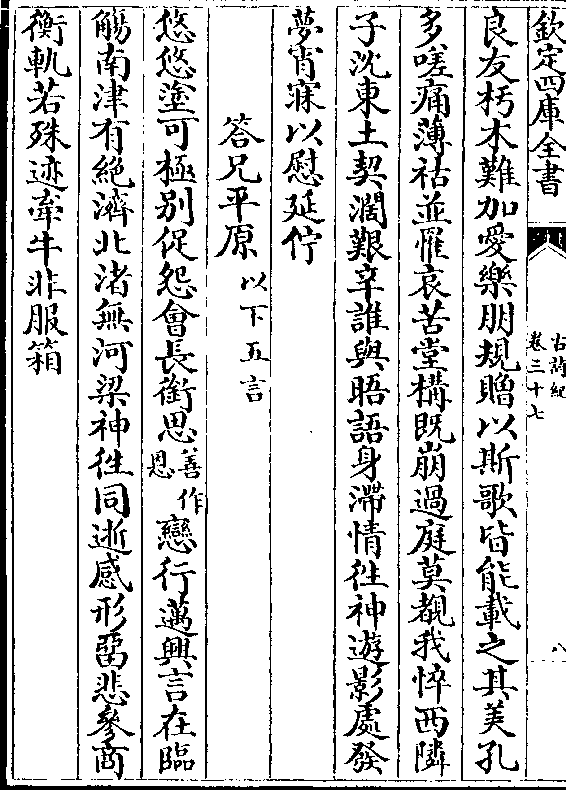 欽定四庫全書
古詩紀
卷三十七
八
良友朽木難加愛樂朋規贈以斯歌皆能載之其美孔
多嗟痛薄祜並罹哀苦堂構既崩過庭莫覩我悴西隣
子沈東土契濶艱辛誰與晤語身滯情往神遊影處發
夢宵寐以慰延佇
答兄平原以下五言
悠悠塗可極别促怨會長銜思善作恩戀行邁興言在臨
觴南津有絶濟北渚無河梁神往同逝感形留悲參商
衡軌若殊迹牽牛非服箱